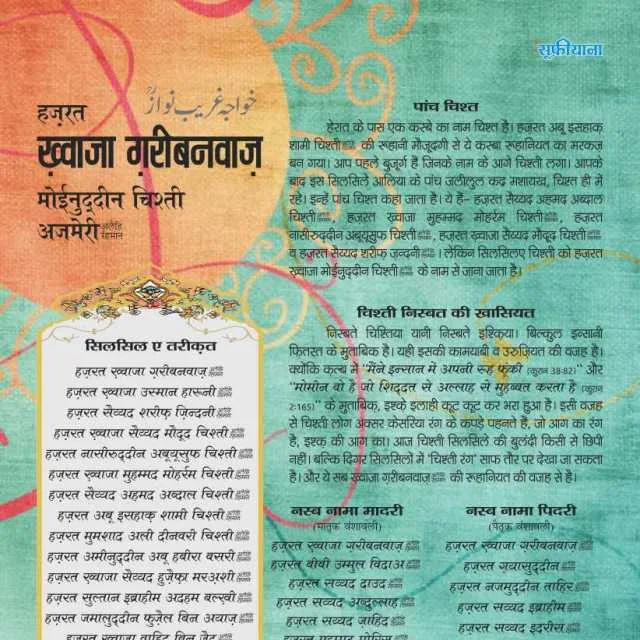 सूफ़ीयाना
हज़रत
خواجہ غریب نواز
ख़्वाजा ग़रीबनवाज़
मोईनुद्दीन चिश्ती
अजमेरी
पांच चिश्त
हेरात के पास एक कस्बे का नाम चिश्त है। हज़रत अबू इसहाक़
शामी चिश्ती की रूहानी मौजूदगी से ये कस्बा रूहानियत का मरकज़
बन गया। आप पहले बुज़ूर्ग है जिनके नाम के आगे चिश्ती लगा। आपके
बाद इस सिलसिले आलिया के पांच जलीलुल कद्र मशायख, चिश्त ही में
रहे। इन्हें पांच चिश्त कहा जाता है। ये है– हज़रत सैय्यद अहमद अब्दाल
चिश्ती, हज़रत ख़्वाजा मुहम्मद मोहर्रम चिश्ती, हज़रत
नासीरुद्दीन अबूयूसुफ चिश्ती, हज़रत ख़्वाजा सैय्यद मौदूद चिश्ती
व हज़रत सैय्यद शरीफ ज़न्दनी। लेकिन सिलसिलए चिश्ती को हज़रत
ख़्वाजा मोईनुद्दीन चिश्ती के नाम से जाना जाता है।
चिश्ती निस्बत की ख़ासियत
निस्बते चिश्तिया यानी निस्बते इश्क़िया। बिल्कुल इन्सानी
फितरत के मुताबिक है। यही इसकी कामयाबी व उरूजियत की वजह है।
क्योंकि क़ल्ब में "मैंने इन्सान में अपनी रूह फूंकी (कुरान 38:82)" और
"मोमीन वो है जो शिद्दत से अल्लाह से मुहब्बत करता है (कुरान
2:165)" के मुताबिक, इश्क़े इलाही कूट कूट कर भरा हुआ है। इसी वजह
से चिश्ती लोग अक्सर केसरिया रंग के कपड़े पहनते है, जो आग का रंग
है, इश्क़ की आग का। आज चिश्ती सिलसिले की बुलंदी किसी से छिपी
नहीं। बल्कि दिगर सिलसिलों में 'चिश्ती रंग' साफ तौर पर देखा जा सकता
है। और ये सब ख़्वाजा ग़रीबनवाज़ की रूहानियत की वजह से है।
सिलसिल ए तरीक़त
हज़रत ख़्वाजा ग़रीबनवाज़
हज़रत ख़्वाजा उस्मान हारूनी
हज़रत सैय्यद शरीफ ज़िन्दनी
हज़रत ख़्वाजा सैय्यद मौदूद चिश्ती
हज़रत नासीरुद्दीन अबूयूसुफ चिश्ती
हज़रत ख़्वाजा मुहम्मद मोहर्रम चिश्ती
हज़रत सैय्यद अहमद अब्दाल चिश्ती
हज़रत अबू इसहाक़ शामी चिश्ती
हज़रत मुमशाद अली दीनवरी चिश्ती
हज़रत अमीनुद्दीन अबू हबीरा बसरी
हज़रत ख़्वाजा सैय्यद हुज़ैफ़ा मरअशी
हज़रत सुल्तान इब्राहीम अदहम बल्खी
हज़रत जमालुद्दीन फुज़ैल बिन अयाज़
हज़रत ख़्वाजा वाहिद बिन ज़ैद
नस्ब नामा मादरी
(मातृक वंशावली)
हज़रत ख़्वाजा ग़रीबनवाज़
हज़रत बीबी उम्मुल विदाअ
हज़रत सय्यद दाउद
हज़रत सय्यद अब्दुल्लाह
हज़रत सय्यद ज़ाहिद
नस्ब नामा पिदरी
(पैतृक वंशावली)
हज़रत ख़्वाजा ग़रीबनवाज़
हज़रत ग़यासुद्दीन
हज़रत नजमुद्दीन ताहिर
हज़रत सय्यद इब्राहीम
हज़रत सय्यद इदरीस